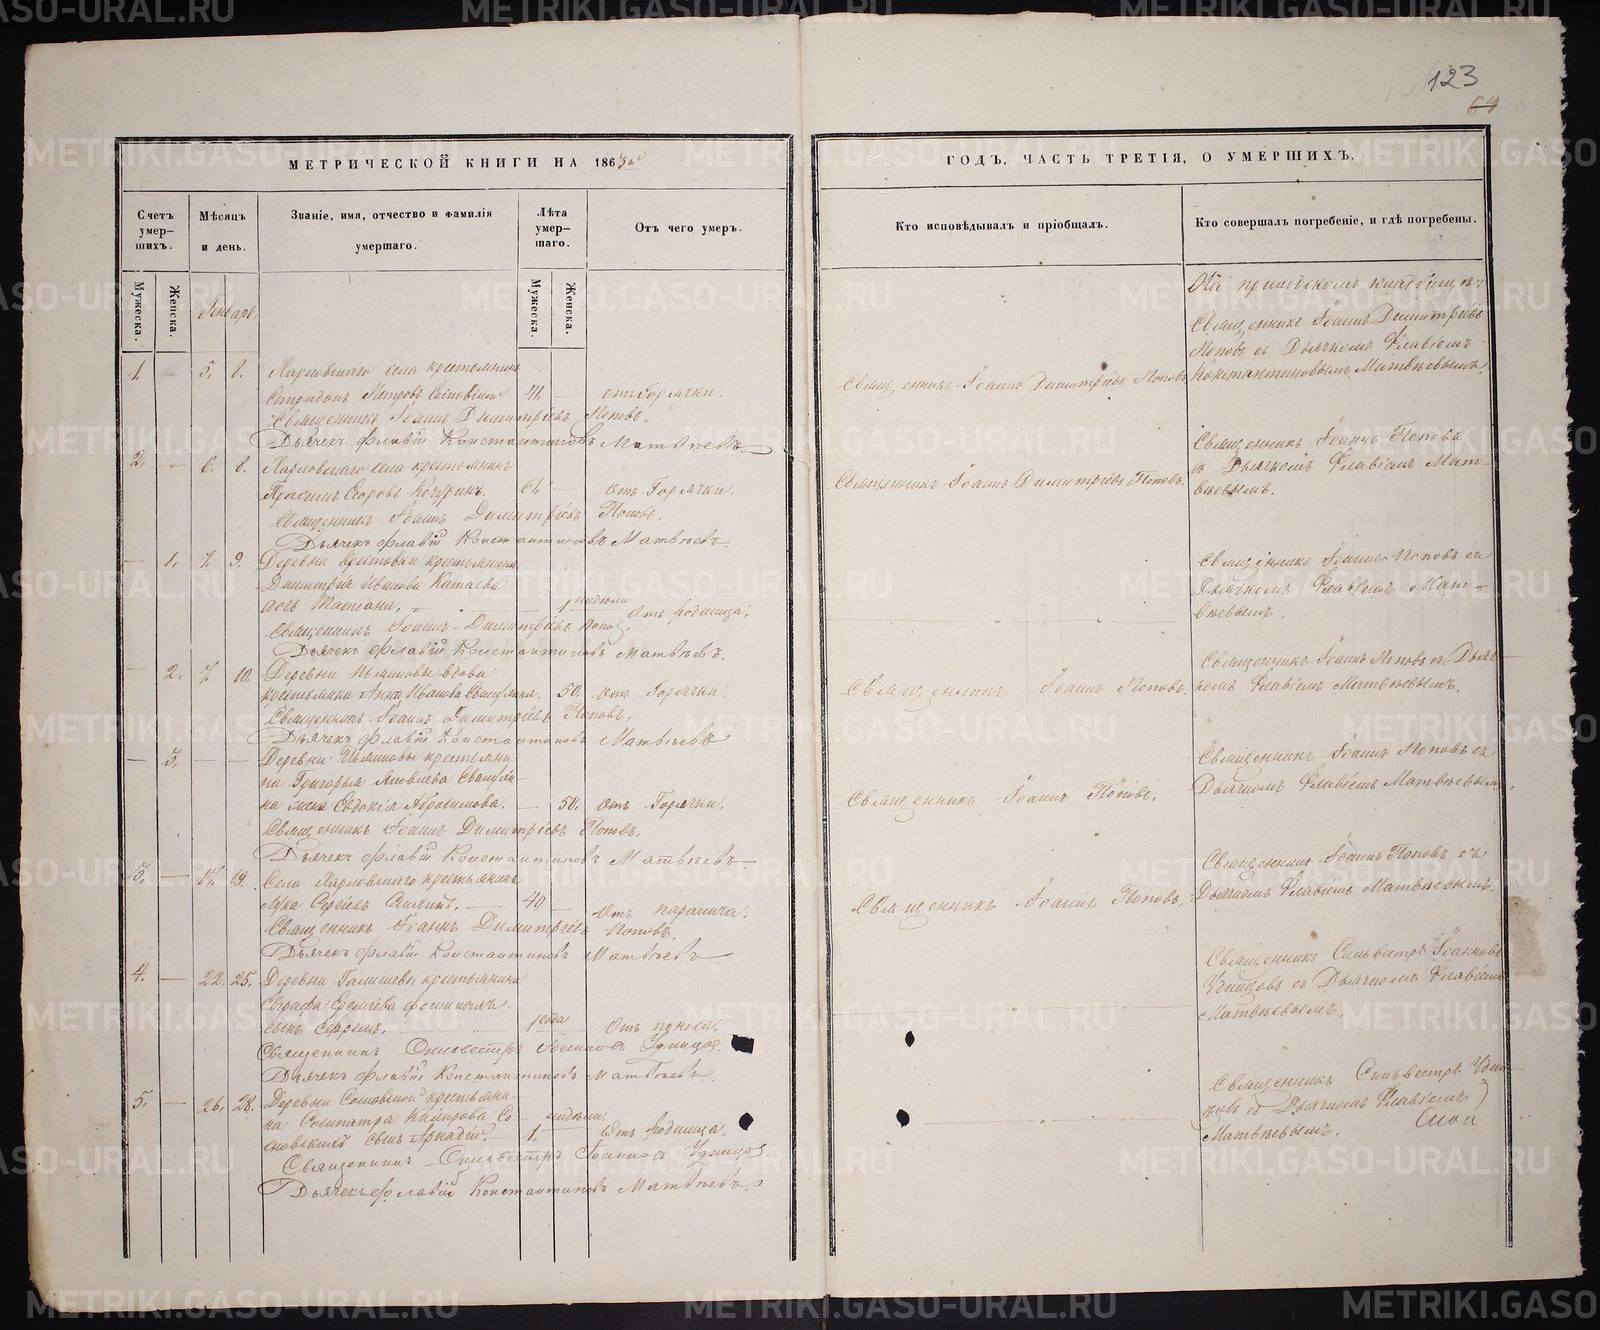 123
64
МЕТРИЧЕСКОЙ КНИГИ НА 1863й
Счетъ умер-шихъ.
Мѣсяцъ и день.
Званіе, имя, отчество и фамилія умершаго.
Лѣта умер-шаго.
Отъ чего умеръ.
Мужеска.
Женска.
Январь.
Мужеска.
Женска.
1. 5. 8. села крестьянинъ
Спиридонъ Петровъ 41. — отъ Горячки.
Священникъ Іоаннъ Димитріевъ Поповъ.
Дьячекъ Флавій Константиновъ Матвѣевъ.
2. 6. 8. села крестьянинъ
Герасимъ Егоровъ 61. — Отъ Горячки.
Священникъ Іоаннъ Димитріевъ Поповъ.
Дьячекъ Флавій Константиновъ Матвѣевъ.
— 1. 7. 9. Деревни крестьянина
Димитрія Иванова Китаева
дочь 1 недѣли Отъ родимца.
Священникъ Іоаннъ Димитріевъ Поповъ.
Дьячекъ Флавій Константиновъ Матвѣевъ.
— 2. 7. 10. Деревни вдова
крестьянка Анна Иванова 50. отъ Горячки.
Священникъ Іоаннъ Димитріевъ Поповъ.
Дьячекъ Флавій Константиновъ Матвѣевъ
— 3. — — Деревни крестьяни
на Григорья Яковлева
на жена Евдокія Абросимова. — 50. отъ Горячки.
Священникъ Іоаннъ Димитріевъ Поповъ.
Дьячекъ Флавій Константиновъ Матвѣевъ
3. — 17. 19. Села крестьянинъ
Лука Сергіевъ — 40 — Отъ паралича.
Священникъ Іоаннъ Димитріевъ Поповъ.
Дьячекъ Флавій Константиновъ Матвѣевъ
4. — 22. 25. Деревни крестьянина
сынъ Ефремъ. 1 года Отъ поноса.
Священникъ Сильвестръ Іоанновъ Удинцовъ.
Дьячекъ Флавій Константиновъ Матвѣевъ.
5. — 26. 28. Деревни Сосновской крестьяни
на Сосипатра Со
сновскихъ сынъ Аркадій. — 1. недѣли Отъ родимца.
Священникъ Сильвестръ Іоанновъ Удинцовъ.
Дьячекъ Флавій Константиновъ Матвѣевъ.
ГОДЪ, ЧАСТЬ ТРЕТІЯ, О УМЕРШИХЪ.
Кто исповѣдывалъ и пріобщалъ.
Кто совершалъ погребеніе, и гдѣ погребены.
На приходскомъ кладбищѣ:
Священникъ Іоаннъ Димитріевъ
Поповъ съ Дьячкомъ Флавіемъ
Священникъ Іоаннъ Димитріевъ Поповъ. Константиновымъ Матвѣевымъ.
Священникъ Іоаннъ Поповъ
съ Дьячкомъ Флавіемъ Мат-
Священникъ Іоаннъ Димитріевъ Поповъ. вѣевымъ.
Священникъ Іоаннъ Поповъ съ
Дьячкомъ Флавіемъ Мат-
вѣевымъ.
Священникъ Іоаннъ Поповъ съ Дьяч-
Священникъ Іоаннъ Поповъ. комъ Флавіемъ Матвѣевымъ.
Священникъ Іоаннъ Поповъ съ
Священникъ Іоаннъ Поповъ. Дьячкомъ Флавіемъ Матвѣевымъ.
Священникъ Іоаннъ Поповъ съ
Священникъ Іоаннъ Поповъ. Дьячкомъ Флавіемъ Матвѣевымъ.
Священникъ Сильвестръ Іоанновъ
Удинцовъ съ Дьячкомъ Флавіемъ
Матвѣевымъ.
Священникъ Сильвестръ Удин
цовъ съ Дьячкомъ Флавіемъ
Матвѣевымъ.
METRIKI.GASO-URAL.RU